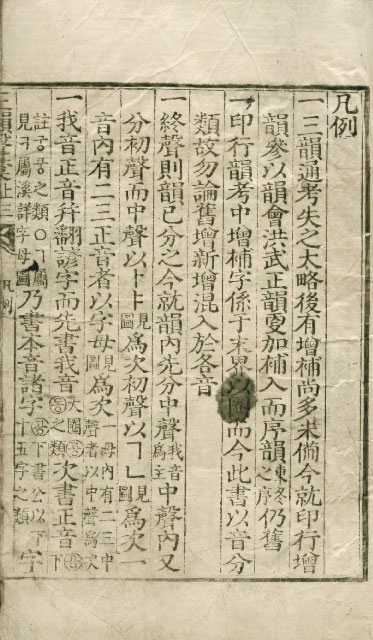 凡例
一三韻通考失之太略後有增補尚多未備今就印行增
韻參以韻會洪武正韻更加補入而序韻東冬之序仍舊
一印行韻考中增補字係于末界以圈而今此書以音分
類故勿論舊增新增混入於各音
一終聲則韻已分之今就韻內先分中聲我音爲主中聲內又
分初聲而中聲以ㅏㅑ見圖爲次初聲以ㄱㄴ見圖爲次一
音內有二三正音者以字母見圖爲次一母內有二三中聲者以中聲爲次
一我音正音幷翻諺字而先書我音大圈之類次書正音下
註之類ㅇㄱ屬見ㅋ屬溪詳字母圖乃書本音諸字下書公以下十五字之類字
凡例